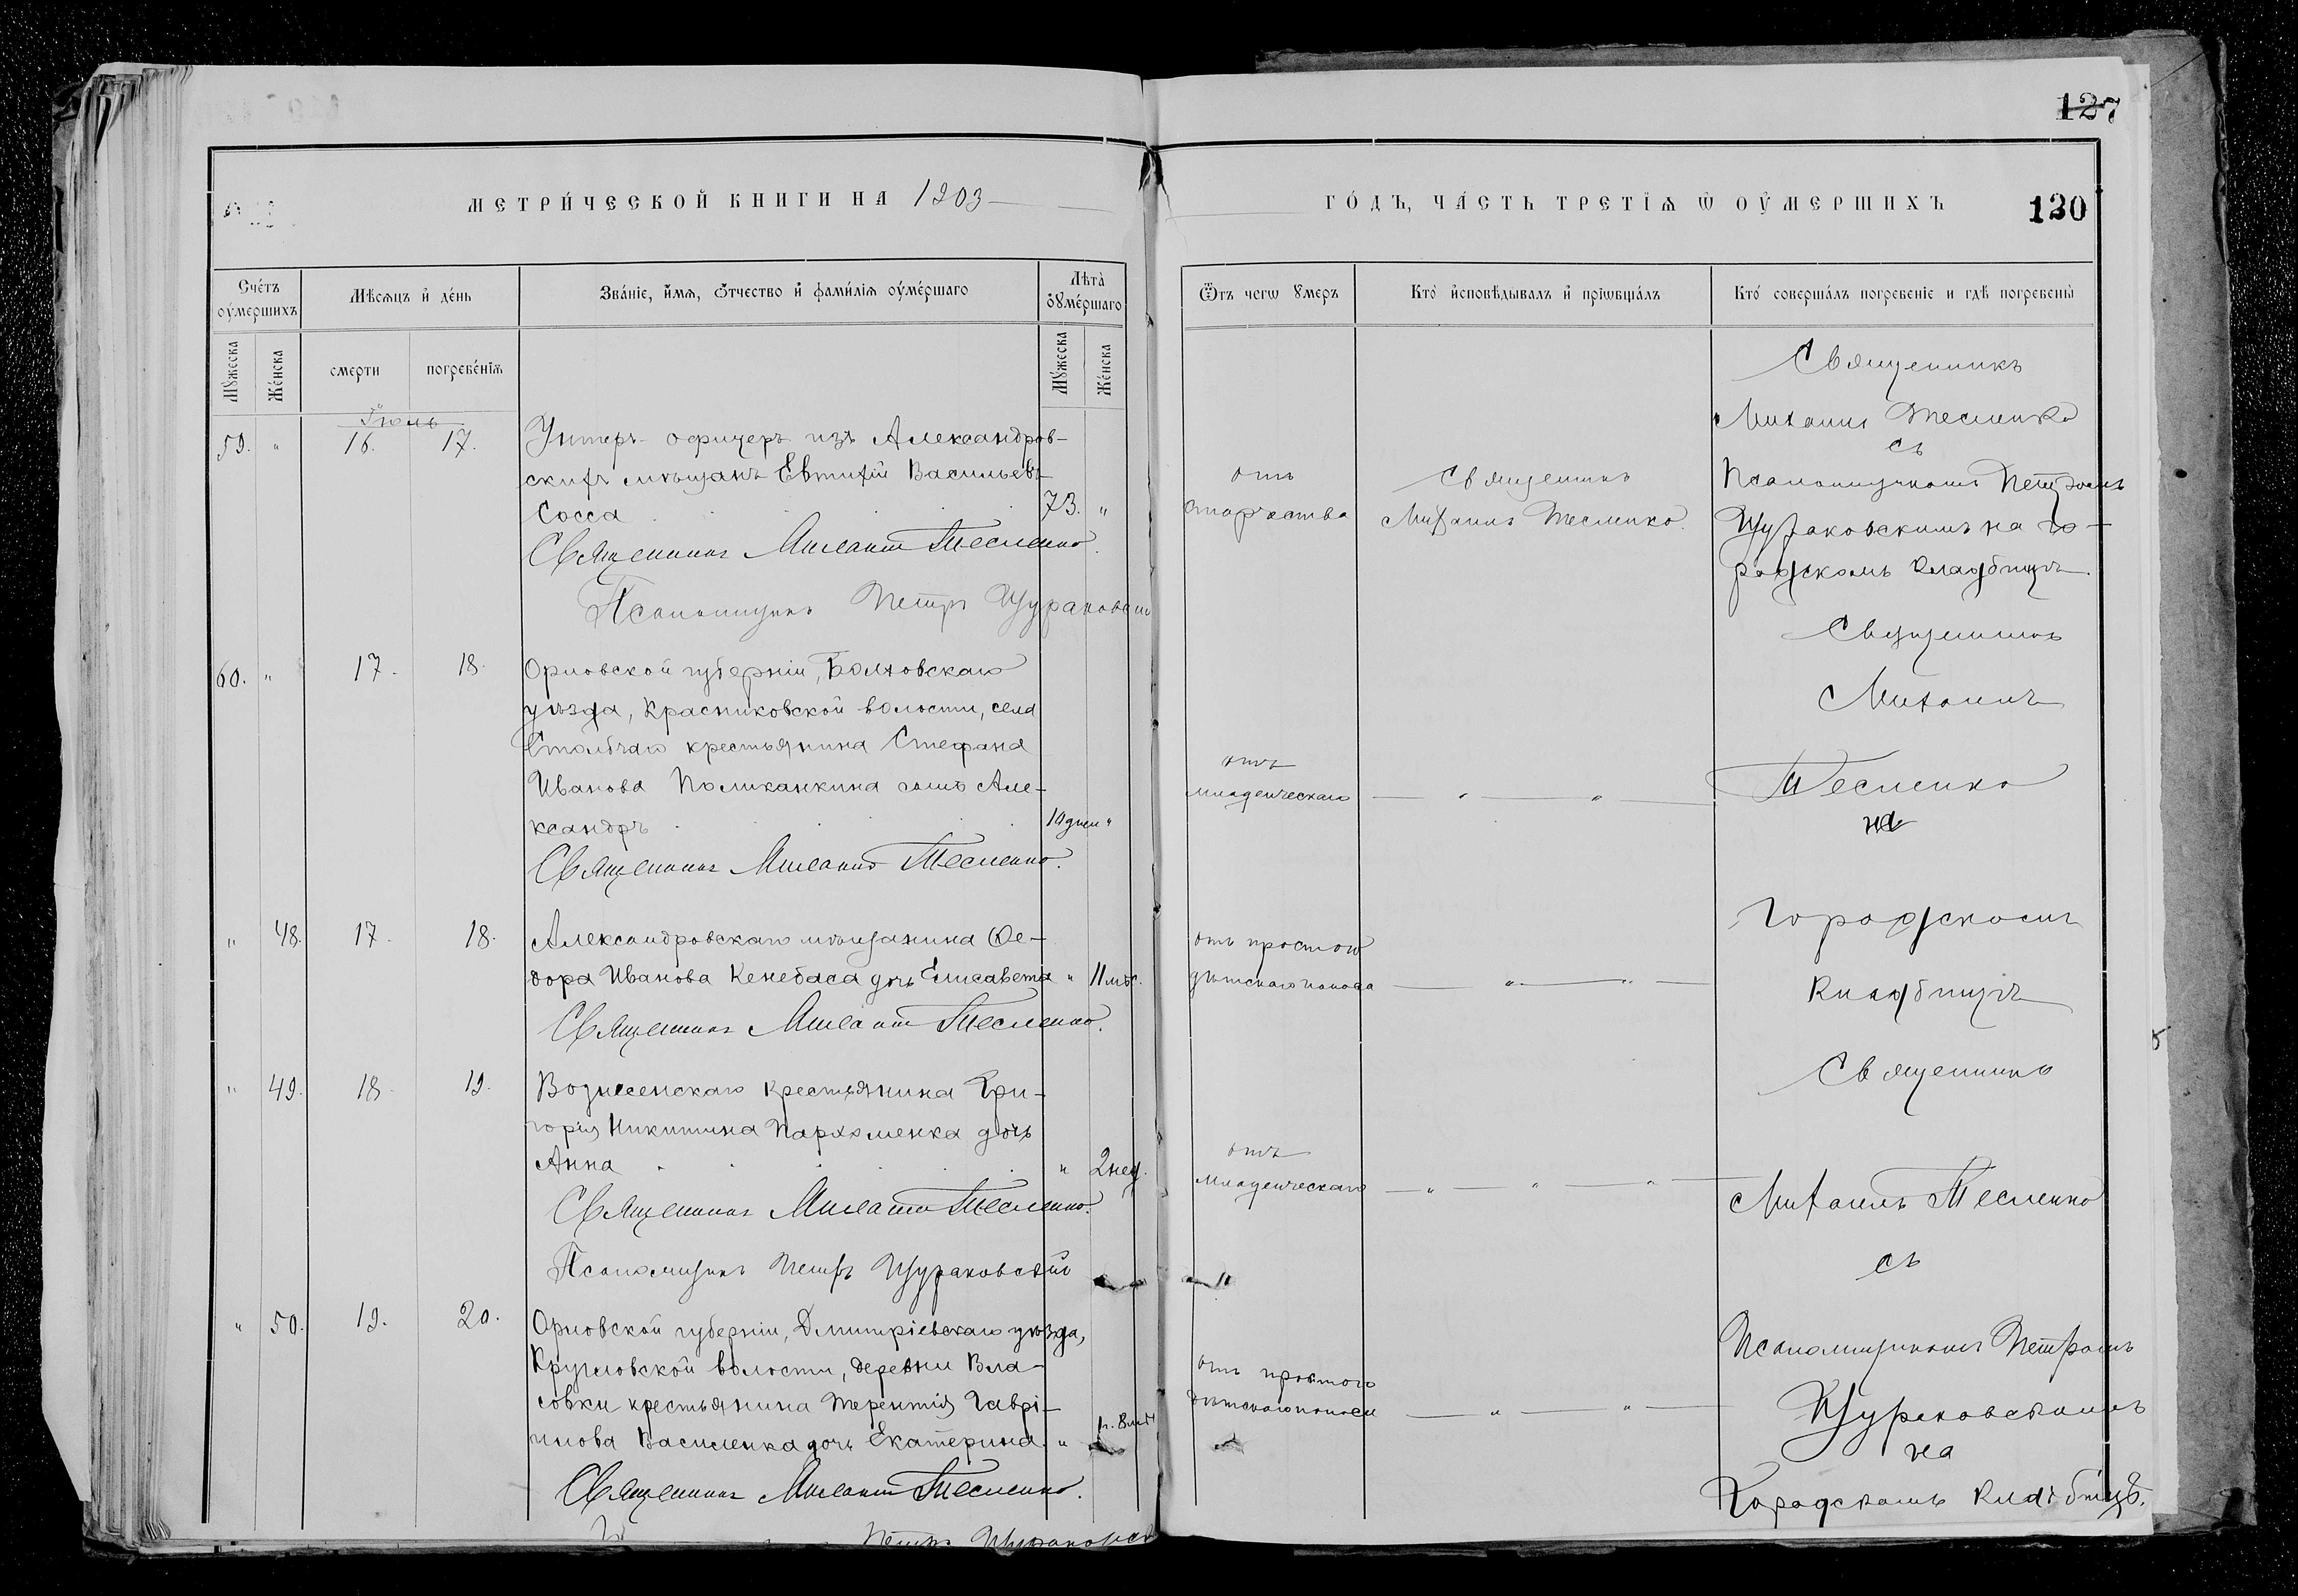 127
МЕТРИ́ЧЕСКОЙ КНИГИ НА 1903
ГО́ДЪ, ЧА́СТЬ ТРЕТІѦ Ѡ ОУ҆МЕРШИХЪ
130
Сче́тъ оу҆ме́ршихъ
Мѣсѧцъ и҆ де́нь
Зва́ніе, и҆́мѧ, ѻ҆́тчество и҆ фами́лїѧ оу҆ме́ршаго
Лѣта̀ оу҆ме́ршаго
Ѿ чегѡ ᲂу҆меръ
Кто̀ и҆сповѣ́дывалъ и҆ прїѡбща́лъ
Кто̀ соверша́лъ погребе́ніе и гдѣ̀ погребены̀
Му́жеска
Же́нска
смерти
погребе́нїѧ
Му́жеска
Же́нска
Іюль
59. " 16. 17. Унтеръ-офицеръ изъ Александров-
скихъ мѣщанъ Евтихій Васильевъ
Сосса 73. "
Священникъ Михаилъ Тесленко.
Псаломщикъ Петръ Щураковскій
отъ
старчества
Священникъ
Михаилъ Тесленко.
Священникъ
Михаилъ Тесленко
съ
Псаломщикомъ Петромъ
Щураковскимъ на го-
родскомъ кладбищѣ.
60. " 17. 18. Орловской губерніи, Болховскаго
уѣзда, Красниковской волости, села
Столбчаго крестьянина Стефана
Иванова Поликанкина сынъ Але-
ксандръ 10 дней "
Священникъ Михаилъ Тесленко.
отъ
младенческаго
Священникъ
Михаилъ
Тесленко
на
городскомъ
кладбищѣ
" 48. 17. 18. Александровскаго мѣщанина Ѳе-
дора Иванова Кенебаса дочь Елисавета " 11 мѣс.
Священникъ Михаилъ Тесленко.
отъ простого
дѣтскаго поноса
" 49. 18. 19. Вознесенскаго крестьянина Гри-
горія Никитина Пархоменка дочь
Анна " 2 нед.
Священникъ Михаилъ Тесленко.
Псаломщикъ Петръ Щураковскій
отъ
младенческаго
Священникъ
Михаилъ Тесленко
съ
Псаломщикомъ Петромъ
Щураковскимъ
на
Городскомъ кладбищѣ.
" 50. 19. 20. Орловской губерніи, Дмитріевскаго уѣзда,
Кругловской волости, деревни Вла-
совки крестьянина Терентія Гаврі-
илова Василенка дочь Екатерина "
Священникъ Михаилъ Тесленко.
Петръ Щураковскій
отъ простого
дѣтскаго поноса